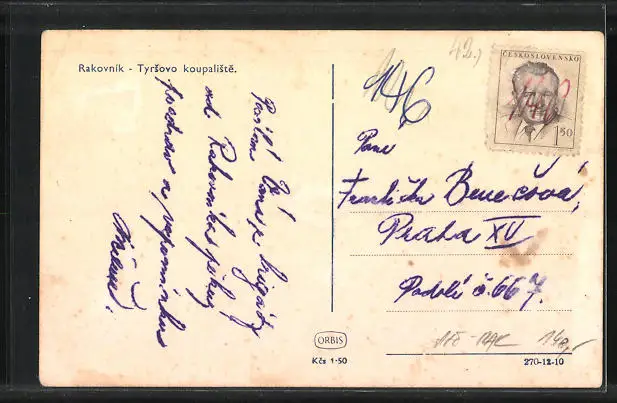 42.)
ČESKOSLOVENSKO
1.50
Rakovník - Tyršovo koupaliště.
146
Posílám Vám z brigády
od Rakovníka pěkný
pozdrav a vzpomínku
Paní
Františka Benešová,
Praha XV
Podolí č. 667.
ORBIS
Kčs 1·50
270-12-10